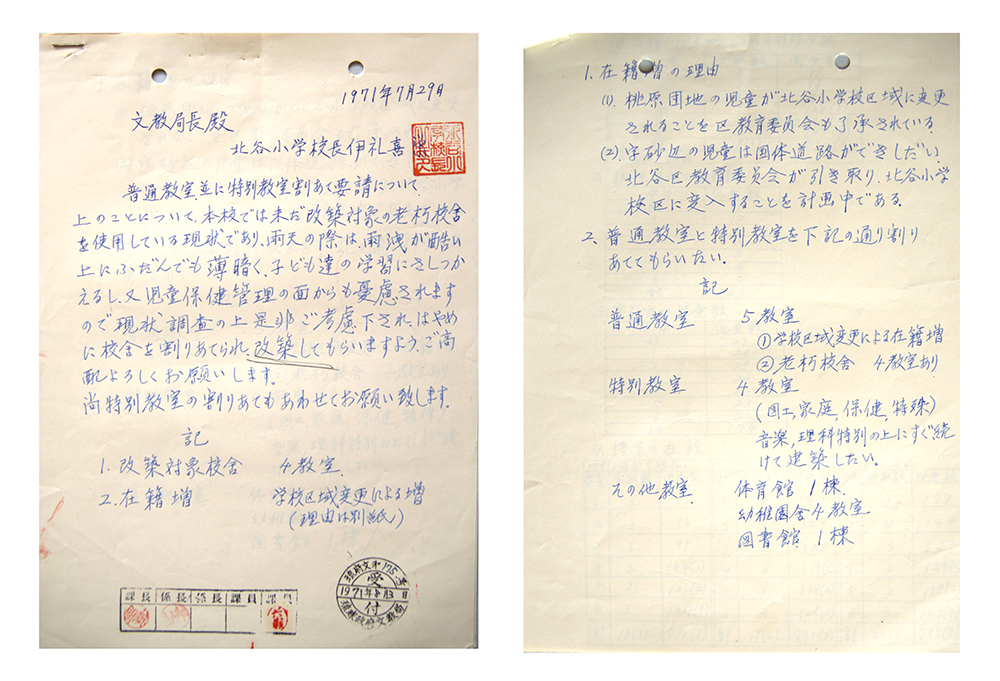 1971年7月29日
文教局長殿
北谷小学校長伊礼喜
普通教室並に特別教室割あて要請について
上のことについて、本校では未だ改築対象の老朽校舎
を使用している現状であり、雨天の際は、雨洩が酷い
上にふだんでも薄暗く、子ども達の学習にさしつか
えるし、又児童保健管理の面からも憂慮されます
ので現状調査の上是非ご考慮下され、はやめ
に校舎を割りあてられ、改築してもらいますよう、ご高
配よろしくお願いします。
尚特別教室の割りあてもあわせてお願い致します。
記
1. 改築対象校舎 4教室
2. 在籍増 学校区域変更による増
(理由は別紙)
課長 係長 係長 課員 課員
受
1971年8月3日
付
琉球政府文教局
1. 在籍増の理由
(1). 桃原団地の児童が北谷小学校区域に変更
されることを区教育委員会も了承されている。
(2). 字砂辺の児童は国体道路ができしだい、
北谷区教育委員会が引き取り、北谷小学
校区に変入することを計画中である。
2. 普通教室と特別教室を下記の通り割り
あててもらいたい。
記
普通教室 5教室
①学校区域変更による在籍増
②老朽校舎 4教室あり
特別教室 4教室
(図工,家庭,保健,特殊)
音楽,理科特別の上にすぐ続
けて建築したい。
その他教室 体育館 1棟
幼稚園舎4教室
図書館 1棟